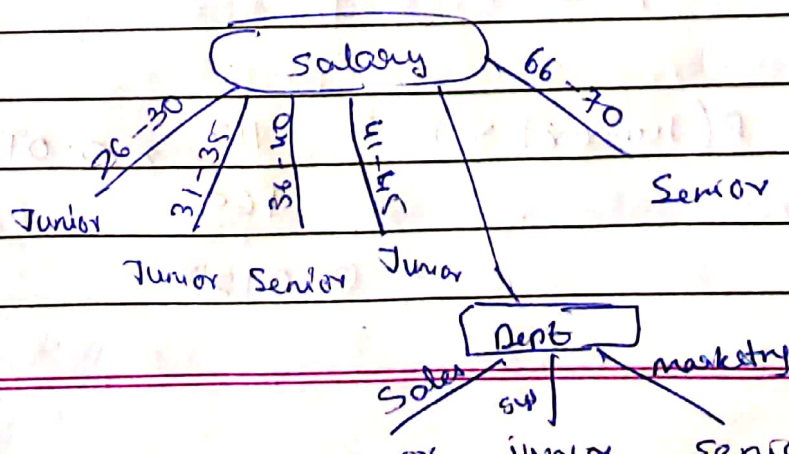 Salary
26-30
31-35
36-40
41-45
66-70
Junior
Junior
Senior
Junior
Senior
Dept
Sales
sys
marketing
junior